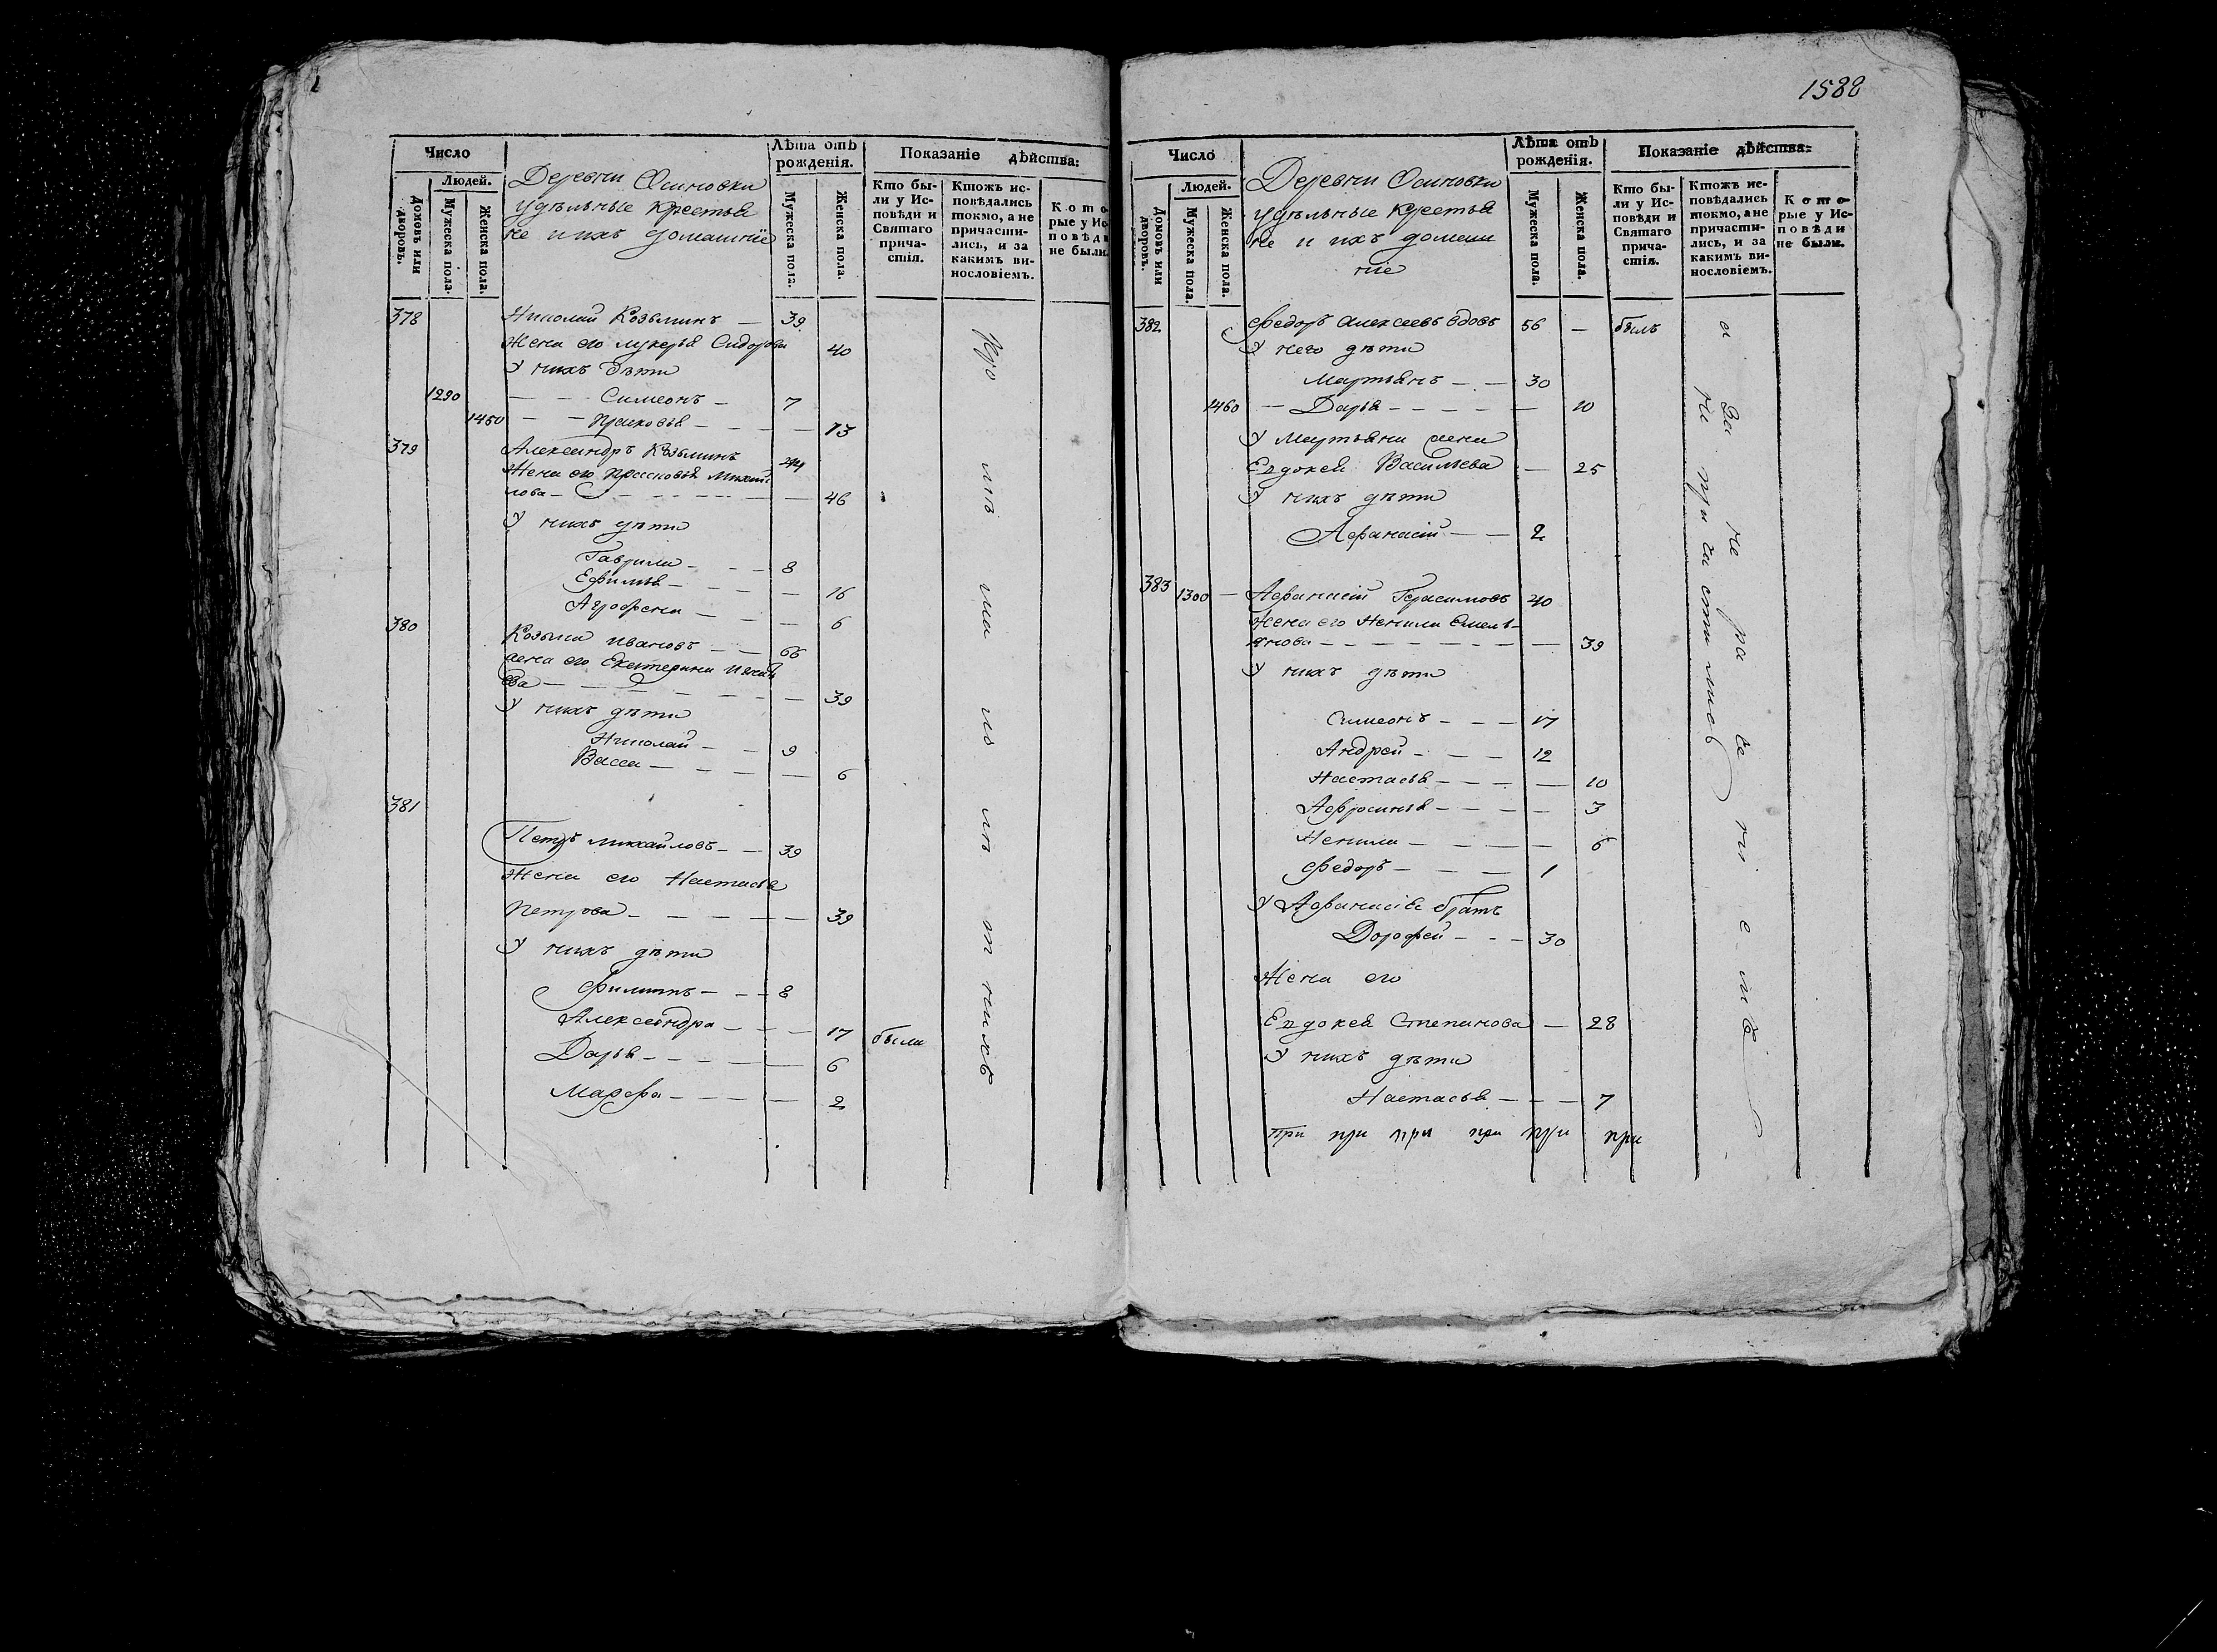 1588
Число
Людей.
Домовъ или дворовъ.
Мужеска пола.
Женска пола.
Деревни Осиновки
удѣльные крестья
не и ихъ домашніе
Лѣта отъ рожденія.
Мужеска пола.
Женска пола.
Показаніе дѣйства:
Кто бы-
ли у Ис-
повѣди и
Святаго
прича-
стія.
Ктожъ ис-
повѣдались
токмо, а не
причасти-
лись, и за
какимъ ви-
нословіемъ.
Кото-
рые у Ис
повѣди
не были.
378 Николай Козьминъ — 39
Жена его лукерья Сидорова 40
У нихъ дѣти
1290 — — Симеонъ — 7
1450 — — Прасковья — — — 13
379 Александръ Козьминъ 44
Жена его Прасковья Михай
лова — — — 46
У нихъ дѣти
Гаврила — — 8
Ефимья — — — 16
Агрофена — — — 6
380 Козьма Ивановъ — — 66
жена его Екатерина
ва — — — 39
У нихъ дѣти
Николай — — 9
Васса — — — 6
381
Петръ михайловъ — — 39
Жена его Настасья
Петрова — — — 39
У нихъ дѣти
Филипъ — — 8
Александра — — — 17 были
Дарья — — — 6
Марфа — — — 2
Число
Людей.
Домовъ или дворовъ.
Мужеска пола.
Женска пола.
Деревни Осиновки
удѣльные крестья
не и ихъ домаш
ніе
Лѣта отъ рожденія.
Мужеска пола.
Женска пола.
Показаніе дѣйства:
Кто бы-
ли у Ис-
повѣди и
Святаго
прича-
стія.
Ктожъ ис-
повѣдались
токмо, а не
причасти-
лись, и за
какимъ ви-
нословіемъ.
Кото-
рые у Ис-
повѣди
не были.
382 Федоръ Алексеевъ вдовъ 56 — былъ
У него дѣти
Мартьянъ — — 30
1460 — Дарья — — — 10
У Мартьяна жена
Евдокея Васильева — 25
У нихъ дѣти
Афанасій — — 2
383 1300 — Афанасій Герасимовъ 40
Жена его Ненила Емель-
янова — — — 39
У нихъ дѣти
Симеонъ — — 17
Андрей — — 12
Настасья — — — 10
Афросинья — — — 3
Ненила — — — 6
Федоръ — — 1
У Афанасія братъ
Дорофей — — 30
Жена его
Евдокея Степанова — 28
У нихъ дѣти
Настасья — — — 7
При при при при при при
а не причастились
За не ра че ни е мъ